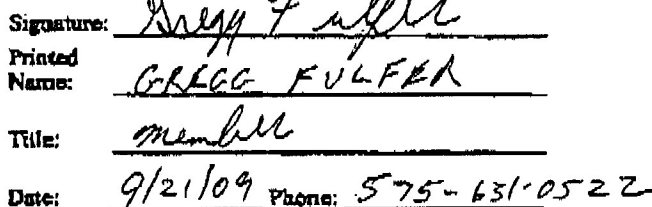 Signature: Gregg Fulfer
Printed
Name: GREGG FULFER
Title: member
Date: 9/21/09 Phone: 575-631-0522